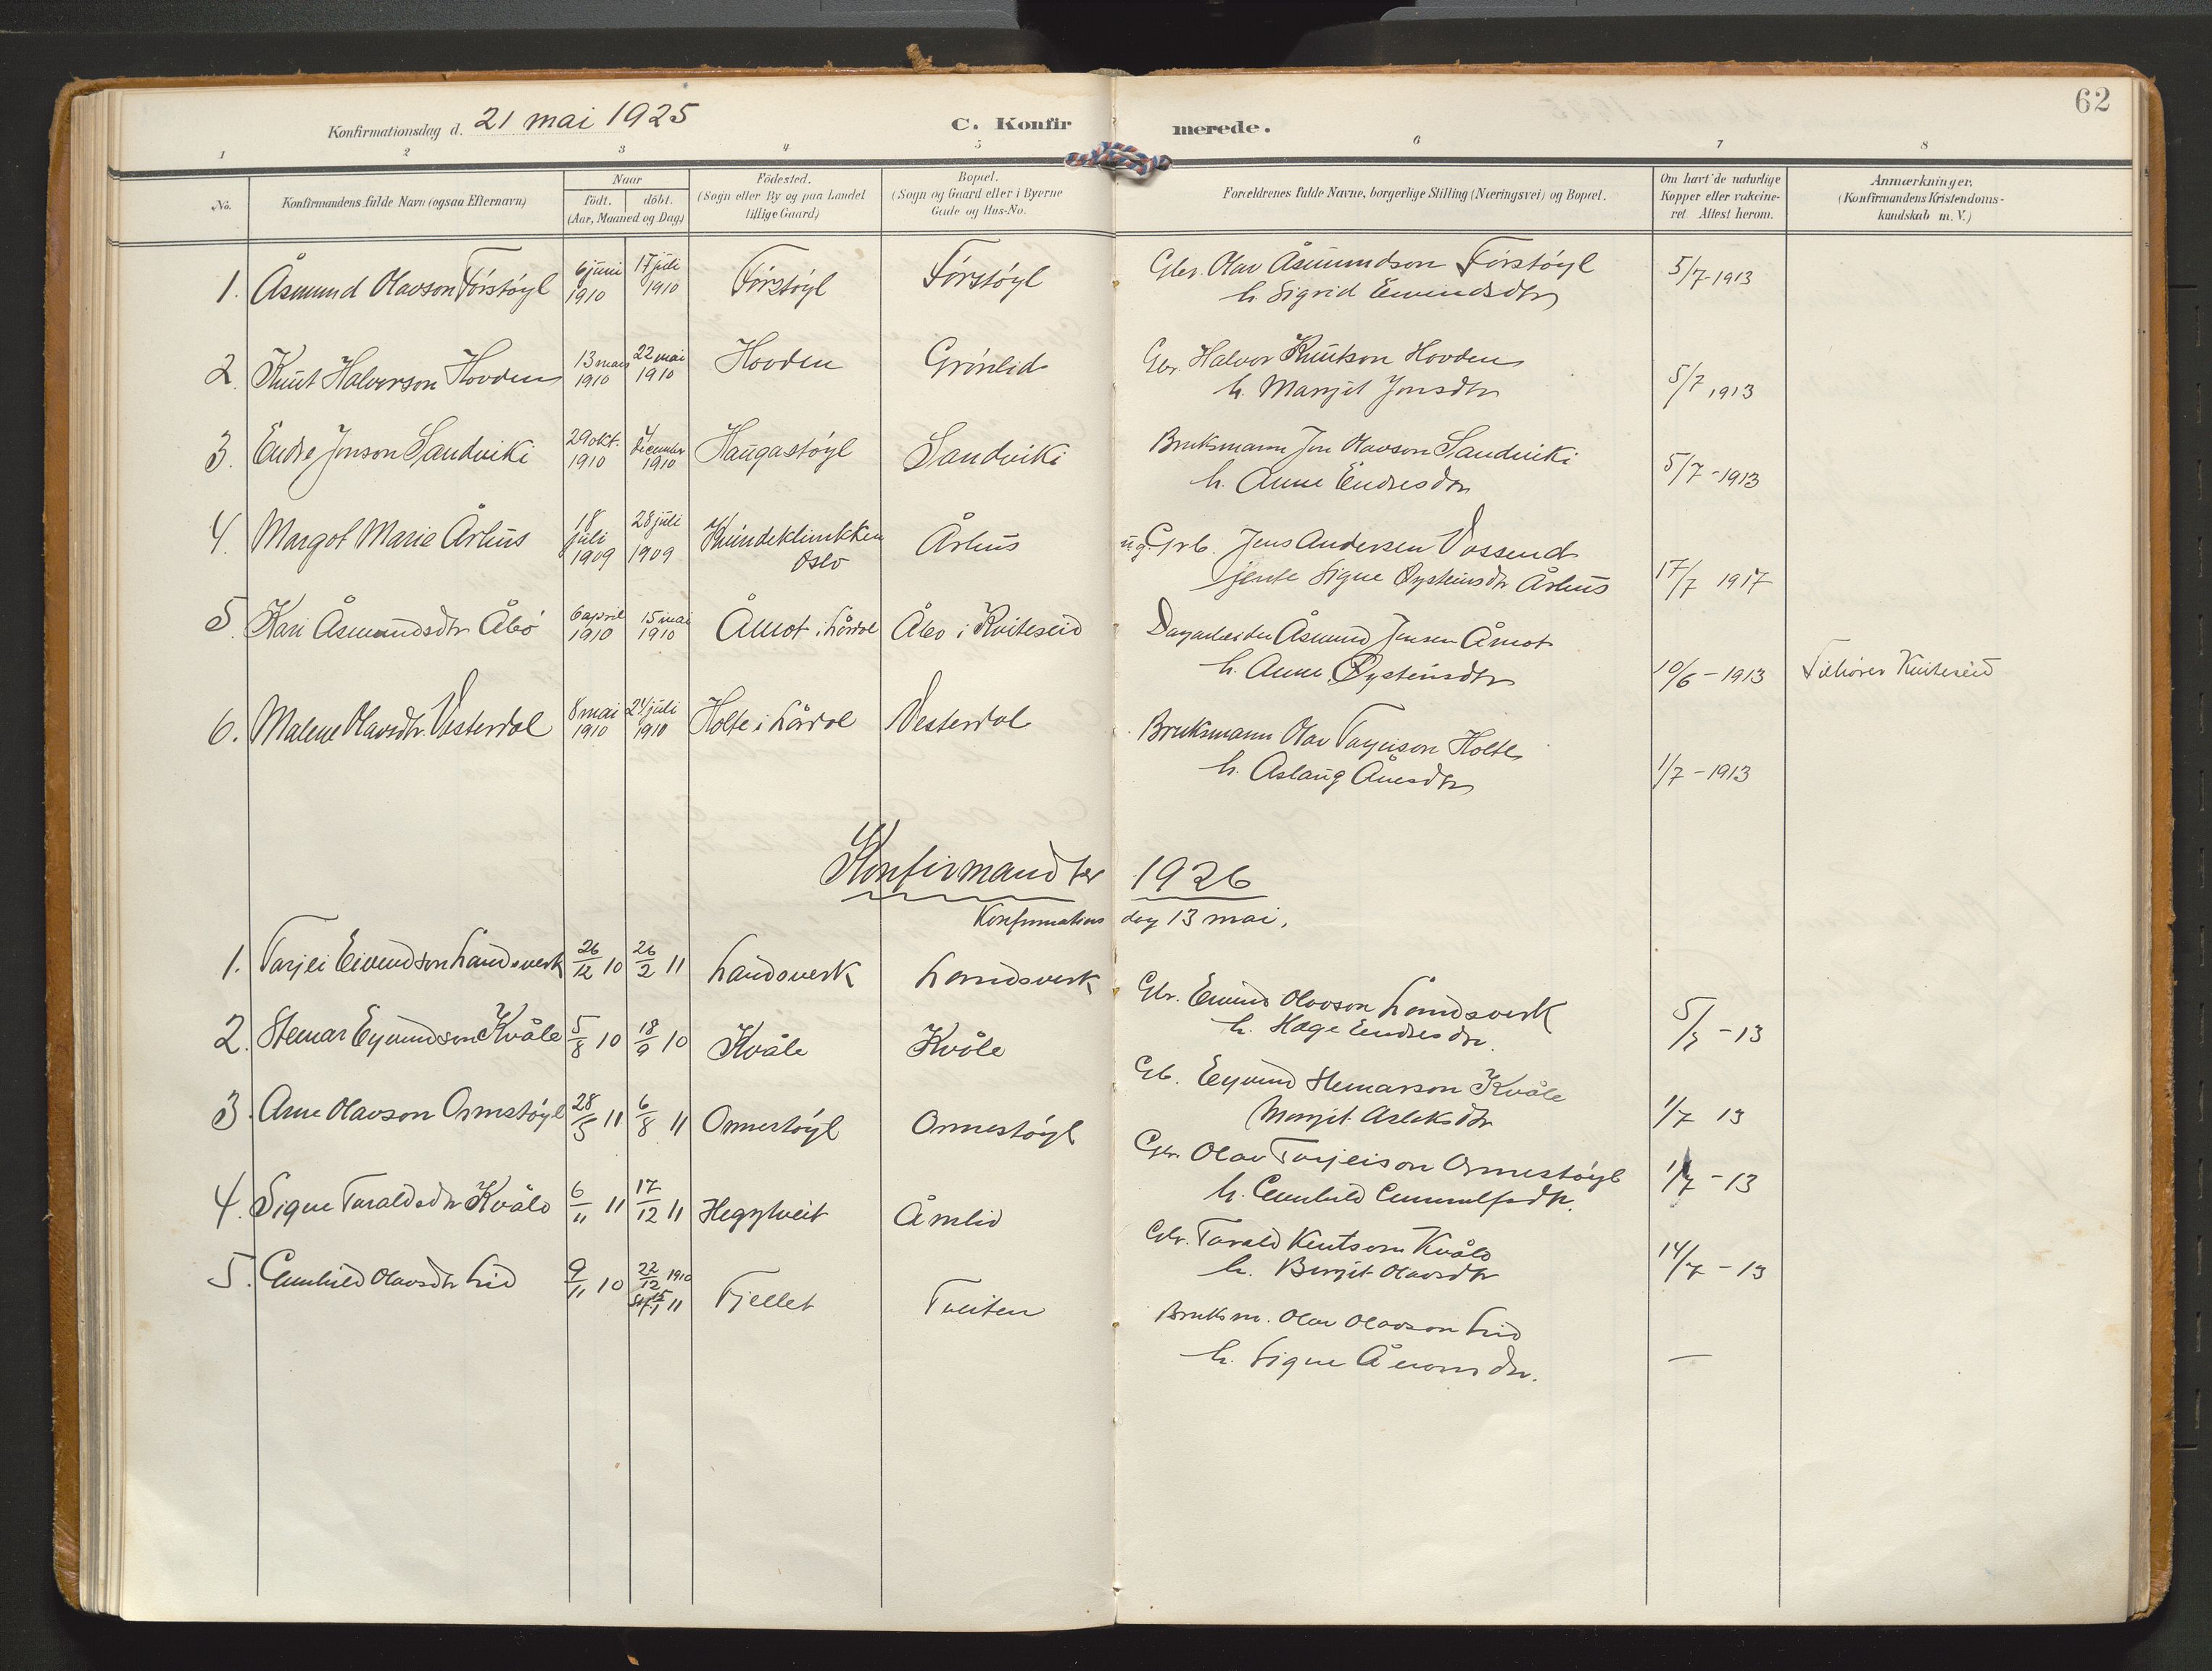 62
Konfirmationsdag d. 21 mai 1925
C. Konfirmerede.
1 2 3 4 5 6 7 8
No.
Konfirmandens fulde Navn (ogsaa Efternavn)
Naar
födt. döbt.
(Aar, Maaned og Dag)
Födested.
(Sogn eller By og paa Landet
tillige Gaard)
Bopæl.
(Sogn og Gaard eller i Byerne
Gade og Hus-No.
Forældrenes fulde Navne, borgerlige Stilling (Næringsvei) og Bopæl.
Om havt de naturlige
Kopper eller vakcine-
ret Attest herom.
Anmærkninger.
(Konfirmandens Kristendoms-
kundskab m. V.)
1. Åsmund Olavson Förstöyl 6 juni 1910 17 juli 1910 Förstöyl Förstöyl Gbr. Olav Åsmundson Förstöyl 5/7-1913
h. Sigrid Eivindsdtr
2. Knut Halvorson Hovden 13 mars 1910 22 mai 1910 Hovden Grönlid Gbr. Halvor Knutson Hovden
h. Margit Jonsdtr 5/7 1913
3. Endre Jonson Sandviki 29 okt. 1910 4 december 1910 Haugastöyl Sandviki Bruksmann Jon Olavson Sandviki
h. Anne Endresdtr 5/7-1913
4. Margot Marie Århus 18 juli 1909 28 juli 1909 Kvindeklinikken Oslo Århus ug. Grb. Jens Andersen Vossend
jente Signe Øysteinsdtr Århus 17/7 1917
5. Kari Åsmundsdtr Åbö 6 april 1910 15 mai 1910 Åmot i Lårdal Åbo i Kviteseid Dagarbeider Åsmund Jensen Åmot
h. Anne Øysteinsdtr 10/6-1913 Tilhörer Kviteseid
6. Malene Olavsdtr. Vesterdal 8 mai 1910 24 juli 1910 Holte i Lårdal Vesterdal Bruksmann Olav Tarjeison Holte
h. Aslaug Ånesdtr 1/7-1913
Konfirmander 1926
Konfirmations dag 13 mai.
1. Tarjei Eivindson Landsverk 26/12 10 26/2 11 Landsverk Landsverk Gbr. Eivind Olavson Landsverk
h. Hæge Endresdtr. 5/7-13
2. Steinar Eyvindson Kvåle 5/8 10 18/9 10 Kvåle Kvåle Gb. Eyvind Steinarson Kvåle
Margit Aslaksdtr 1/7 13
3. Arne Olavson Ormstöyl 28/5 11 6/8 11 Ormestöyl Ormestöyl Gbr. Olav Tarjeison Ormestöyl 1/7-13
h. Gunhild Gunnulfsdtr.
4. Signe Taraldsdtr Kvålo 6/11 11 17/12 11 Heggtveit Åmlid Gbr. Tarald Knutson Kvålo
h. Bergit Olavsdtr 14/7-13
5. Gunhild Olavsdtr Lid 9/11 10 22/12 1910 15/1 11 Fjellet Tveiten Bruksm. Olav Olavson Lid
h. Signe Åvonsdtr. —